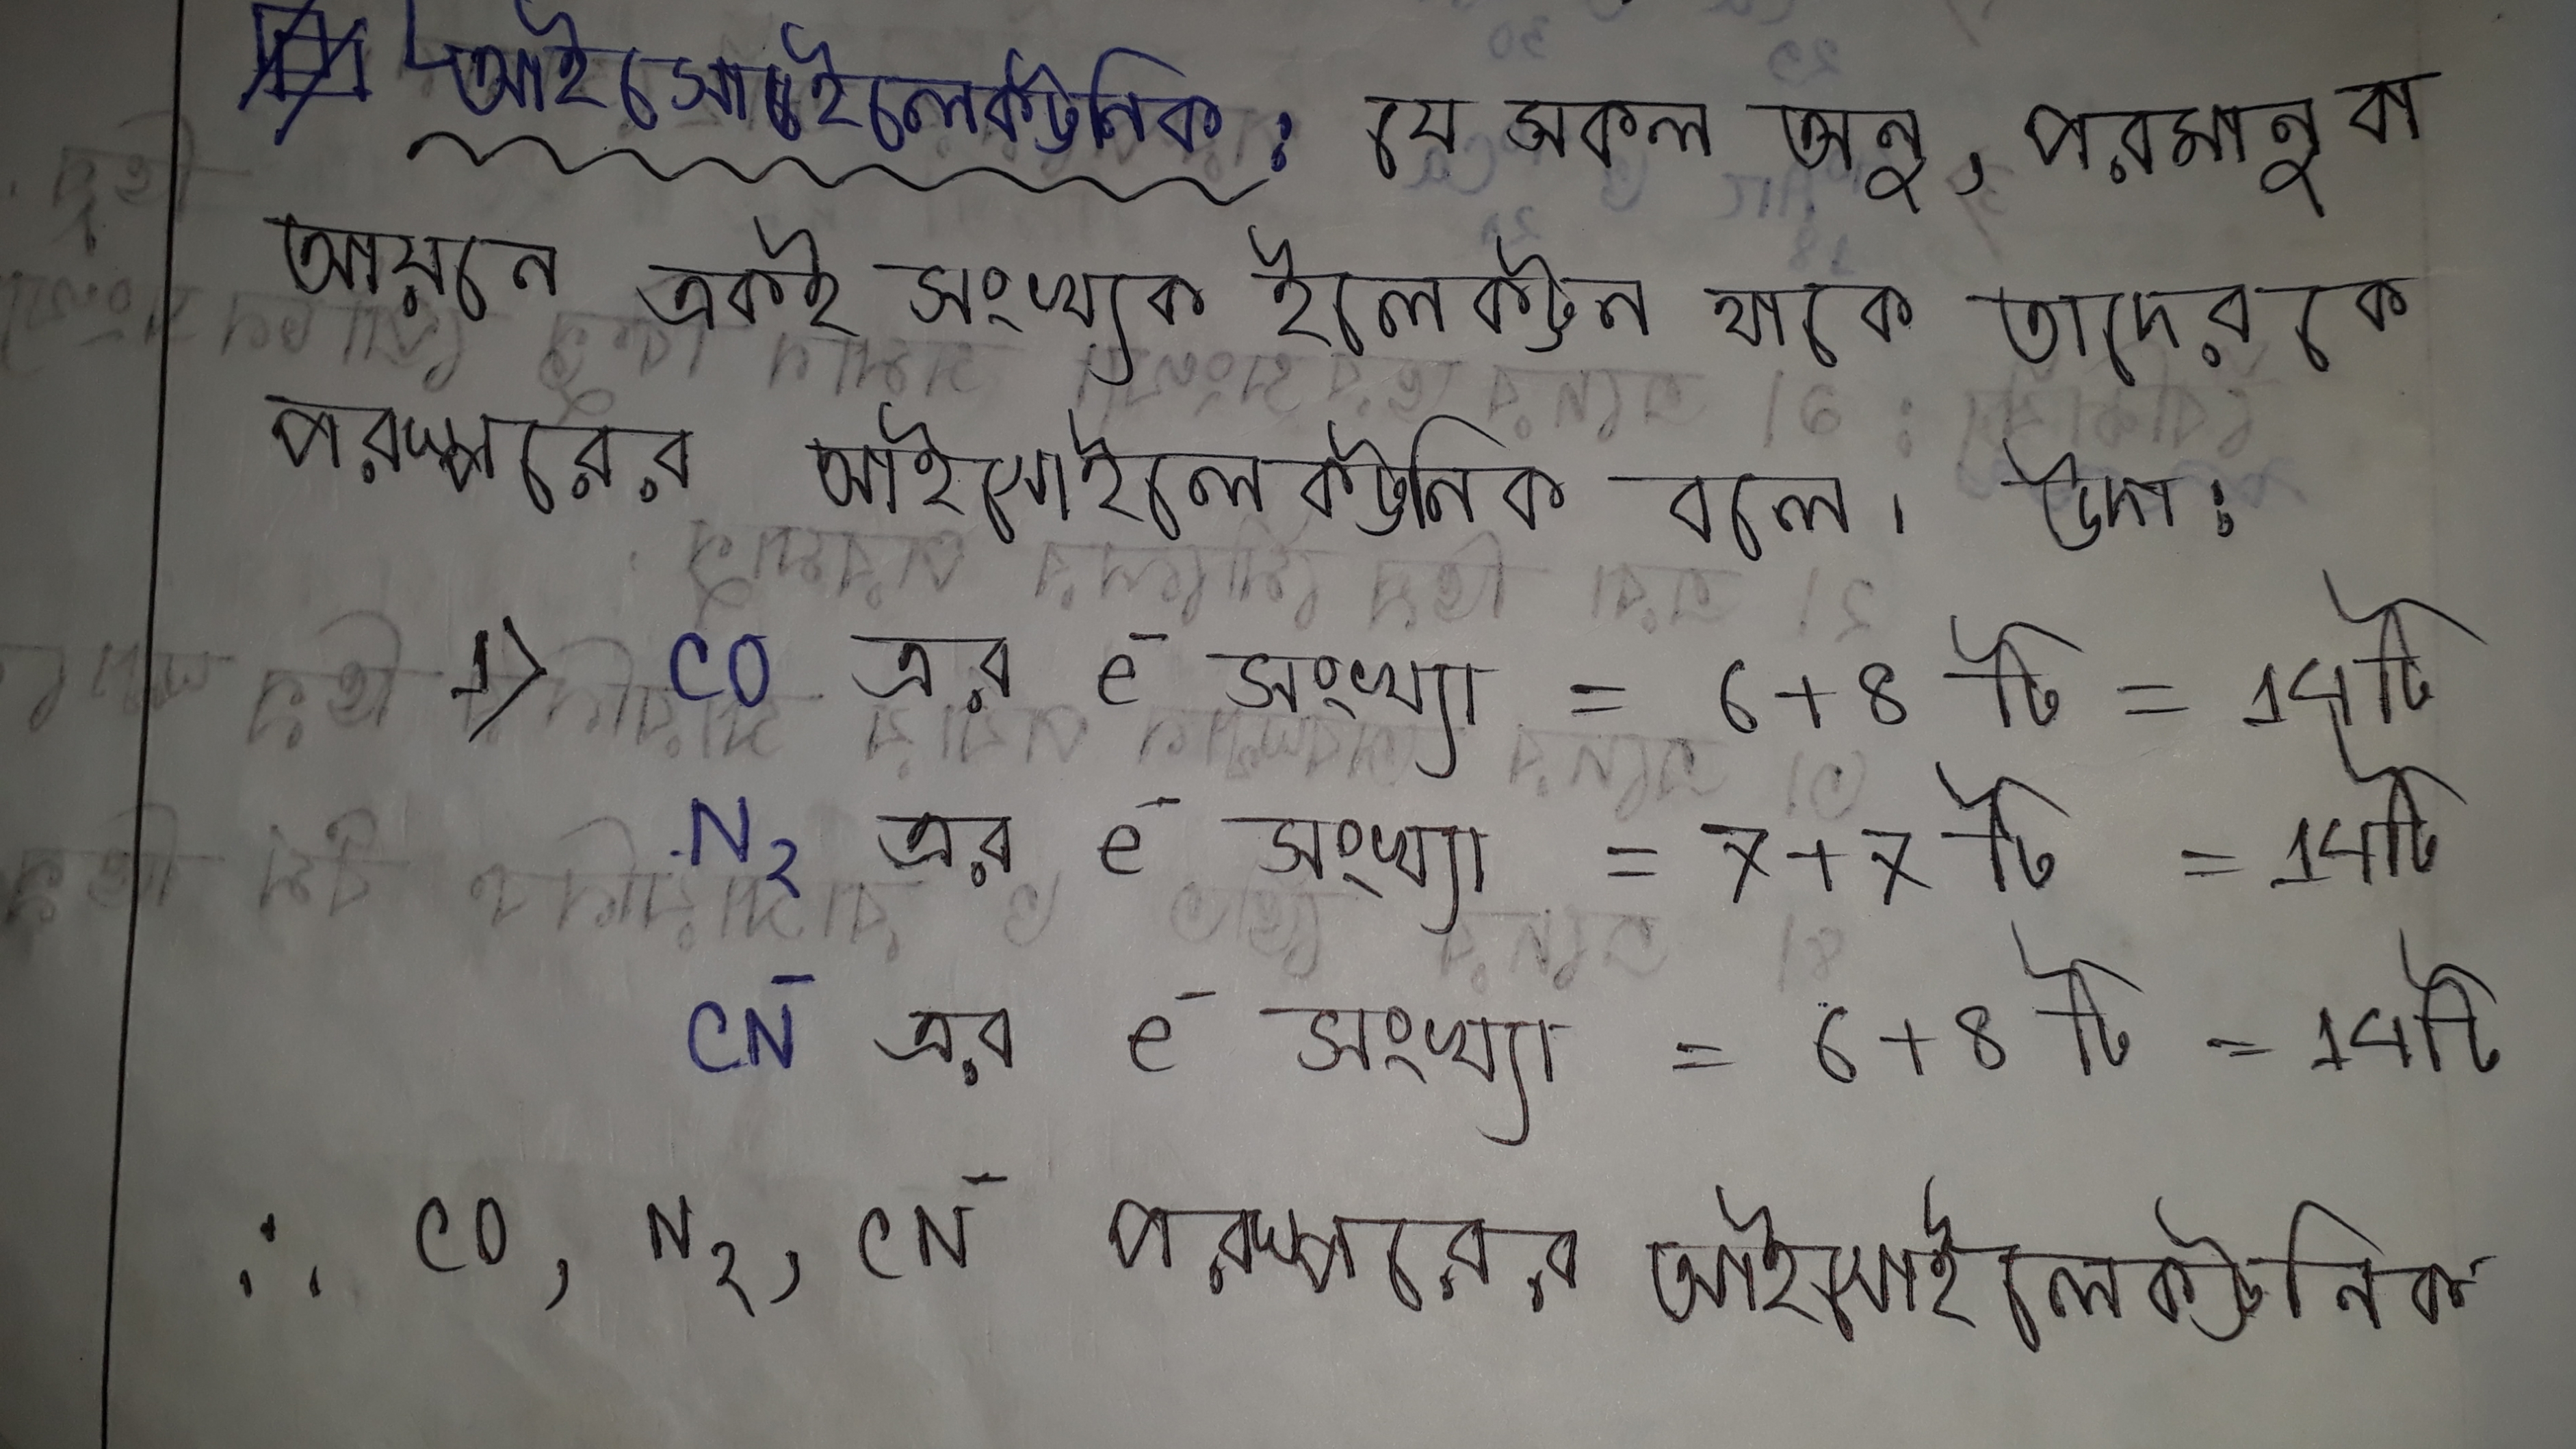 আইসোইলেকট্রনিক: যে সকল অনু, পরমানু বা
আয়নে একই সংখ্যক ইলেকট্রন থাকে তাদেরকে
পরস্পরের আইসোইলেকট্রনিক বলে। উদা:
1> CO এর e⁻ সংখ্যা = 6+8 টি = 14টি
N₂ এর e⁻ সংখ্যা = 7+7 টি = 14টি
CN⁻ এর e⁻ সংখ্যা = 6+8 টি = 14টি
∴ CO, N₂, CN⁻ পরস্পরের আইসোইলেকট্রনিক